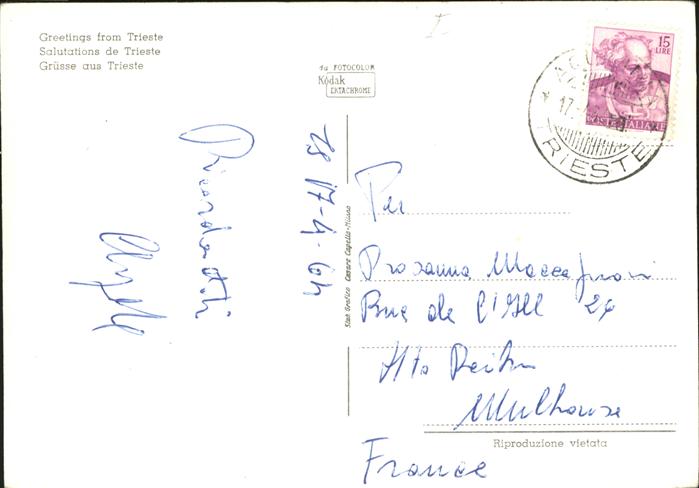 Greetings from Trieste
Salutations de Trieste
Grüsse aus Trieste
da FOTOCOLOR
Kodak
EKTACHROME
15
LIRE
POSTE ITALIANE
TRIESTE
17-4-64
Ricordandoti
Stab. Grafico Cesare Capello-Milano
Per
Rosanna
Rue de l'Ill 24
Mulhouse
France
Riproduzione vietata